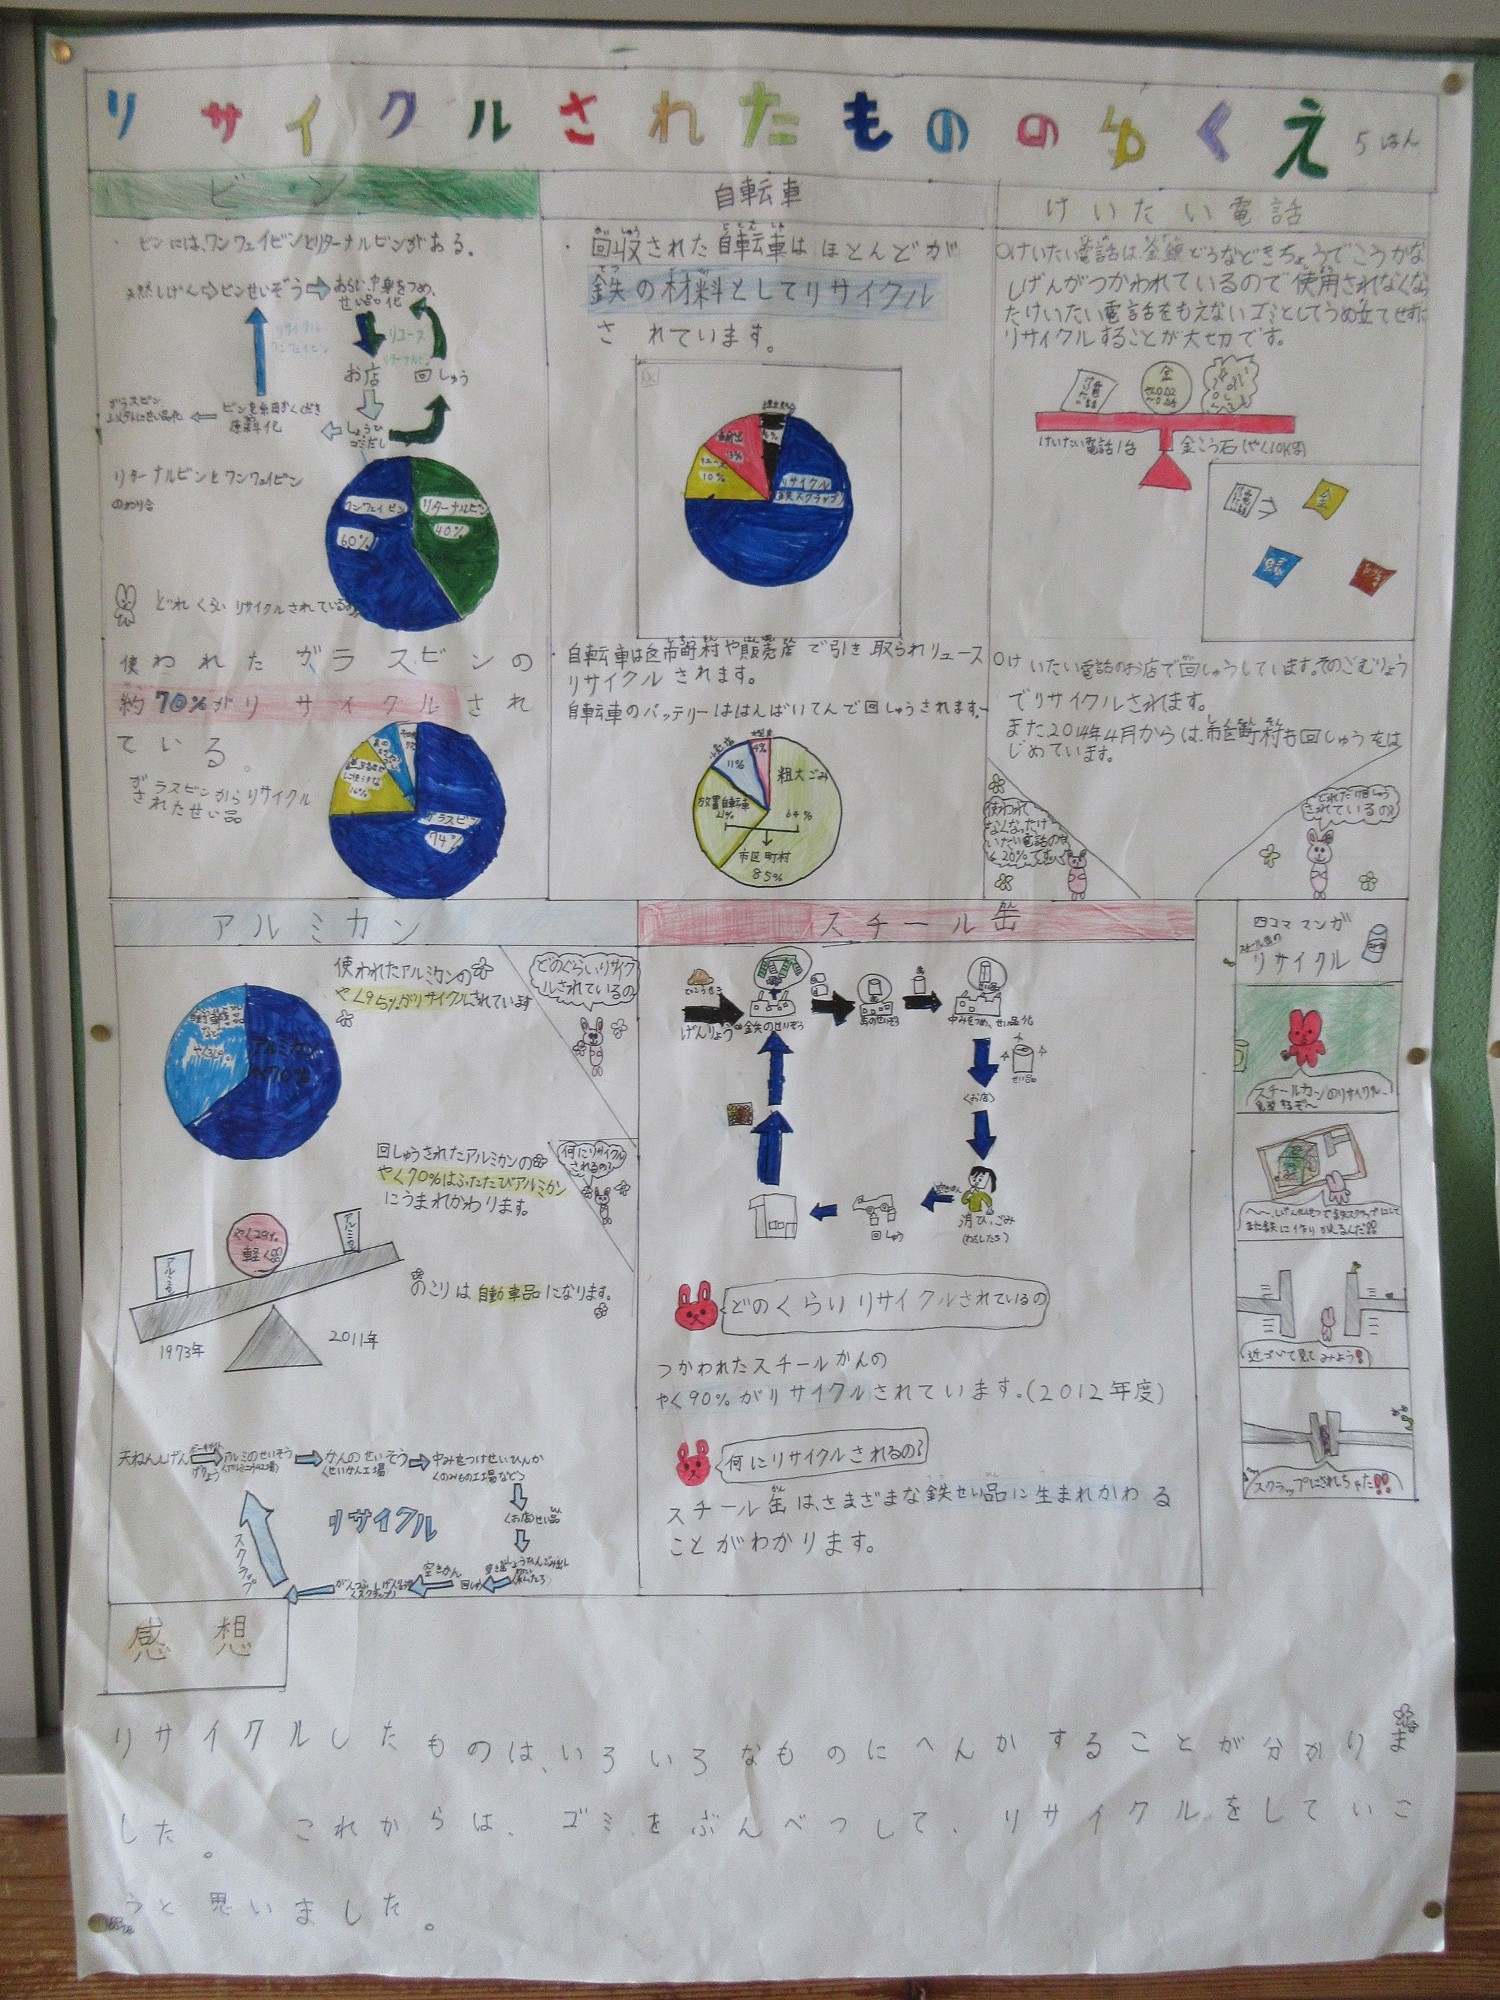 リサイクルされたもののゆくえ 5はん
ビン
・ビンには、ワンウェイビンとリターナルビンがある。
天然しげん ビンせいぞう あらい、中身をつめ、
せい品化
リサイクル
ワンウェイビン
リユース
リターナルビン
お店 回しゅう
しょうひ
ゴミだし
ビンを細かくくだき
原料化
ガラスビン
リターナルビンとワンウェイビン
のわり合
ワンウェイビン
60%
リターナルビン
40%
どれくらいリサイクルされているの
使われたガラスビンの
約70%がリサイクルされ
ている。
ガラスビンからリサイクル
されたせい品
ガラスビン
74%
16%
自転車
・回収された自転車はほとんどが
鉄の材料としてリサイクル
されています。
リサイクル
鉄スクラップ
13%
リユース
10%
・自転車は区市町村や販売店で引き取られリユース
リサイクルされます。
自転車のバッテリーははんばいてんで回しゅうされます。
粗大ごみ
64%
放置自転車
21%
11%
4%
市区町村
85%
けいたい電話
○けいたい電話は、金銀どうなどきちょうでこうかな
しげんがつかわれているので使用されなくなっ
たけいたい電話をもえないゴミとしてうめ立てせずに
リサイクルすることが大切です。
金
けいたい電話1台 金こう石(やく10kg)
金
銀
○けいたい電話のお店で回しゅうしています。そのごむりょう
でリサイクルされます。
また2014年4月からは、市区町村も回しゅうをは
じめています。
使われ
なくなったけ
いたい電話のや
く20%です
どれだけ回しゅう
されているの?
アルミカン
使われたアルミカンの
やく95%がリサイクルされています
どのぐらいリサイク
ルされているの
アルミカン
やく70%
回しゅうされたアルミカンの
やく70%はふたたびアルミカン
にうまれかわります。
何にリサイクル
されるの?
アルミ缶
アルミ缶
軽く
1973年
2011年
のこりは自動車品になります。
天ねんしげん アルミのせいぞう かんのせいぞう 中みをつけせいひんか
(せいかん工場) (のみもの工場など)
(お店)せい品
リサイクル
スクラップ
空きかん
回しゅう
スチール缶
げんりょう 鉄のせいぞう 缶のせいぞう 中みをつめ、せい品化
せい品
(お店)
消ひ、ごみ
(わたしたち)
回しゅう
どのくらいリサイクルされているの
つかわれたスチールかんの
やく90%がリサイクルされています。(2012年度)
何にリサイクルされるの?
スチール缶は、さまざまな鉄せい品に生まれかわる
ことがわかります。
四コママンガ
スチール缶の
リサイクル
スチールカンのリサイクル、
見学するぞ〜
近づいて見てみよう!
スクラップにされちゃた!!
感想
リサイクルしたものは、いろいろなものにへんかすることが分かりま
した。これからは、ゴミをぶんべつして、リサイクルをしていこ
うと思いました。